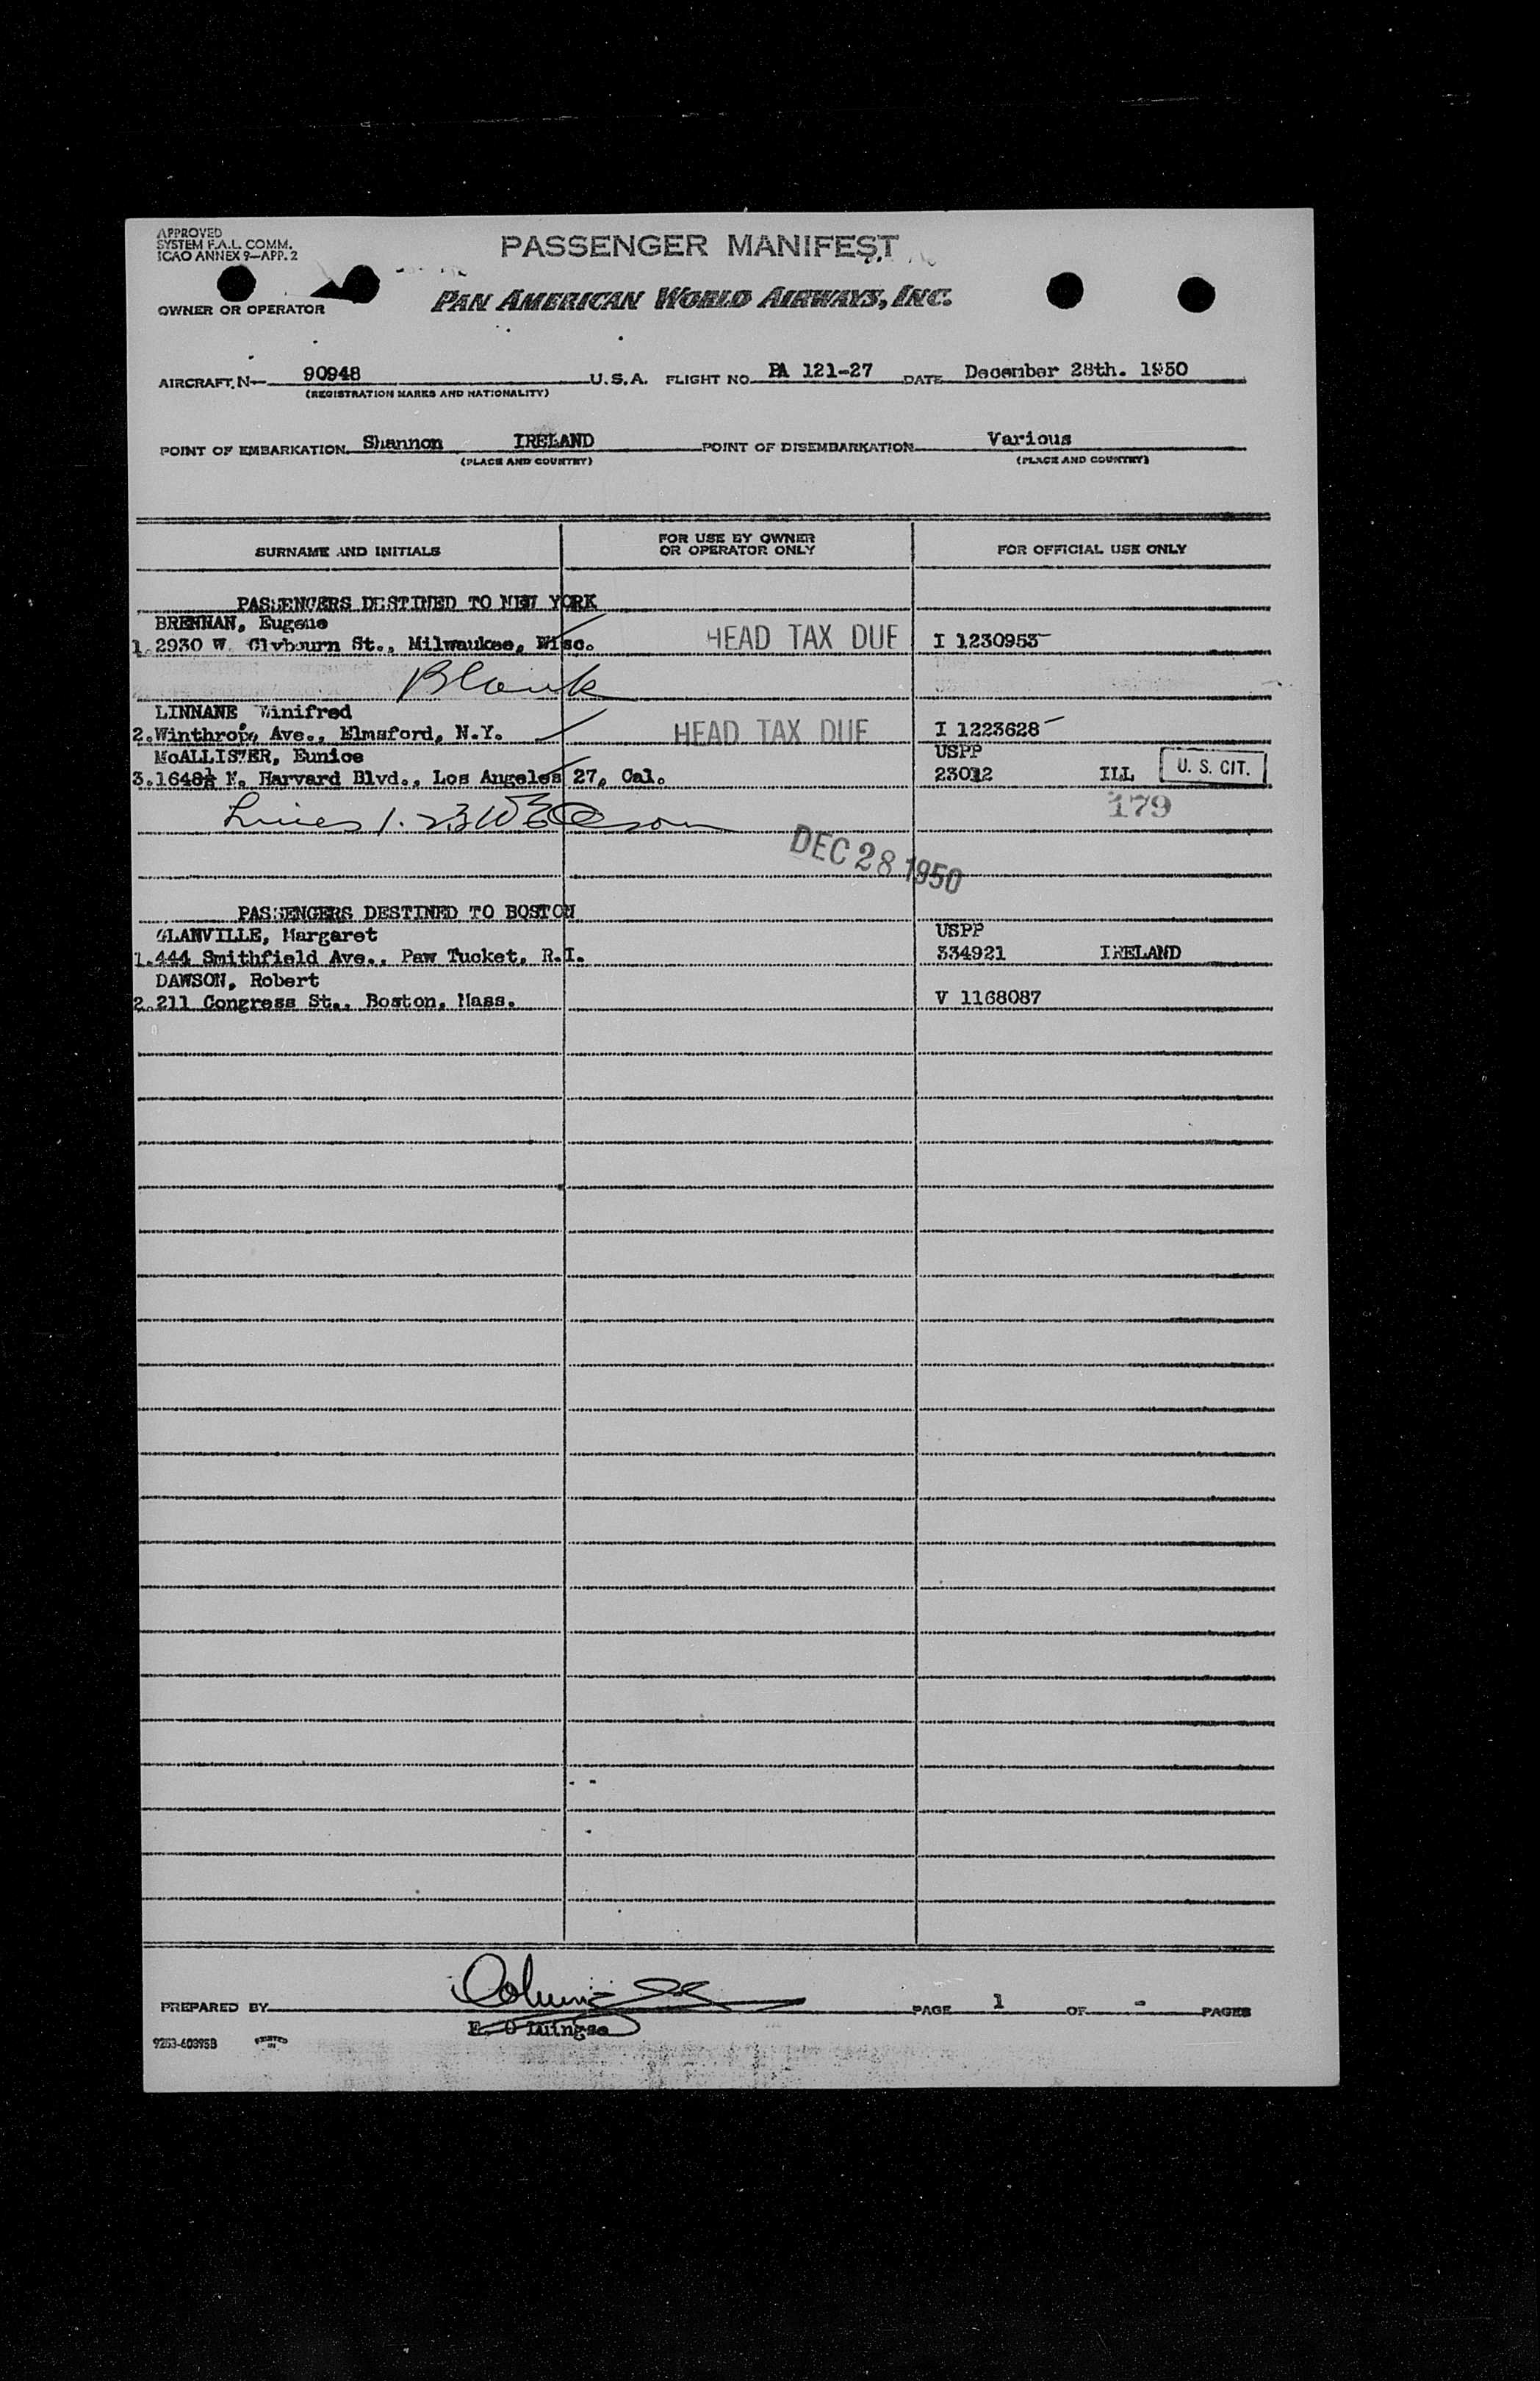 APPROVED
SYSTEM F.A.L. COMM.
ICAO ANNEX 9—APP. 2
PASSENGER MANIFEST
OWNER OR OPERATOR
PAN AMERICAN WORLD AIRWAYS, INC.
AIRCRAFT. N— 90948 U.S.A. FLIGHT NO. PA 121-27 DATE December 28th. 1950
(REGISTRATION MARKS AND NATIONALITY)
POINT OF EMBARKATION Shannon IRELAND POINT OF DISEMBARKATION Various
(PLACE AND COUNTRY) (PLACE AND COUNTRY)
SURNAME AND INITIALS FOR USE BY OWNER OR OPERATOR ONLY FOR OFFICIAL USE ONLY
PASSENGERS DESTINED TO NEW YORK
BRENNAN, Eugene
1. 2930 W. Clybourn St., Milwaukee, Wisc. HEAD TAX DUE I 1230953
Blank
LINNANE, Winifred
2. Winthrop, Ave., Elmsford, N.Y. HEAD TAX DUE I 1223628
McALLISTER, Eunice USPP
3. 1648½ N. Harvard Blvd., Los Angeles 27, Cal. 23012 ILL U. S. CIT.
Lines 1. 2 3 179
DEC 28 1950
PASSENGERS DESTINED TO BOSTON
GLANVILLE, Margaret USPP
1. 444 Smithfield Ave., Paw Tucket, R.I. 334921 IRELAND
DAWSON, Robert
2. 211 Congress St., Boston, Mass. V 1168087
PREPARED BY PAGE 1 OF - PAGES
9253-60395B PRINTED IN